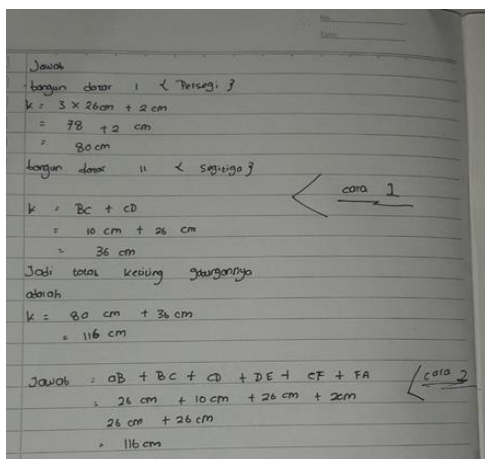 No.
Date
Jawab
bangun datar 1 { Persegi }
k = 3 x 26cm + 2 cm
= 78 + 2 cm
= 80 cm
bangun datar 11 { Segitiga }
cara 1
k = BC + CD
= 10 cm + 26 cm
= 36 cm
Jadi total keliling gabungannya
adalah
k = 80 cm + 36 cm
= 116 cm
Jawab : aB + BC + CD + DE + EF + FA
cara 2
= 26 cm + 10 cm + 26 cm + 2cm
26 cm + 26 cm
= 116 cm